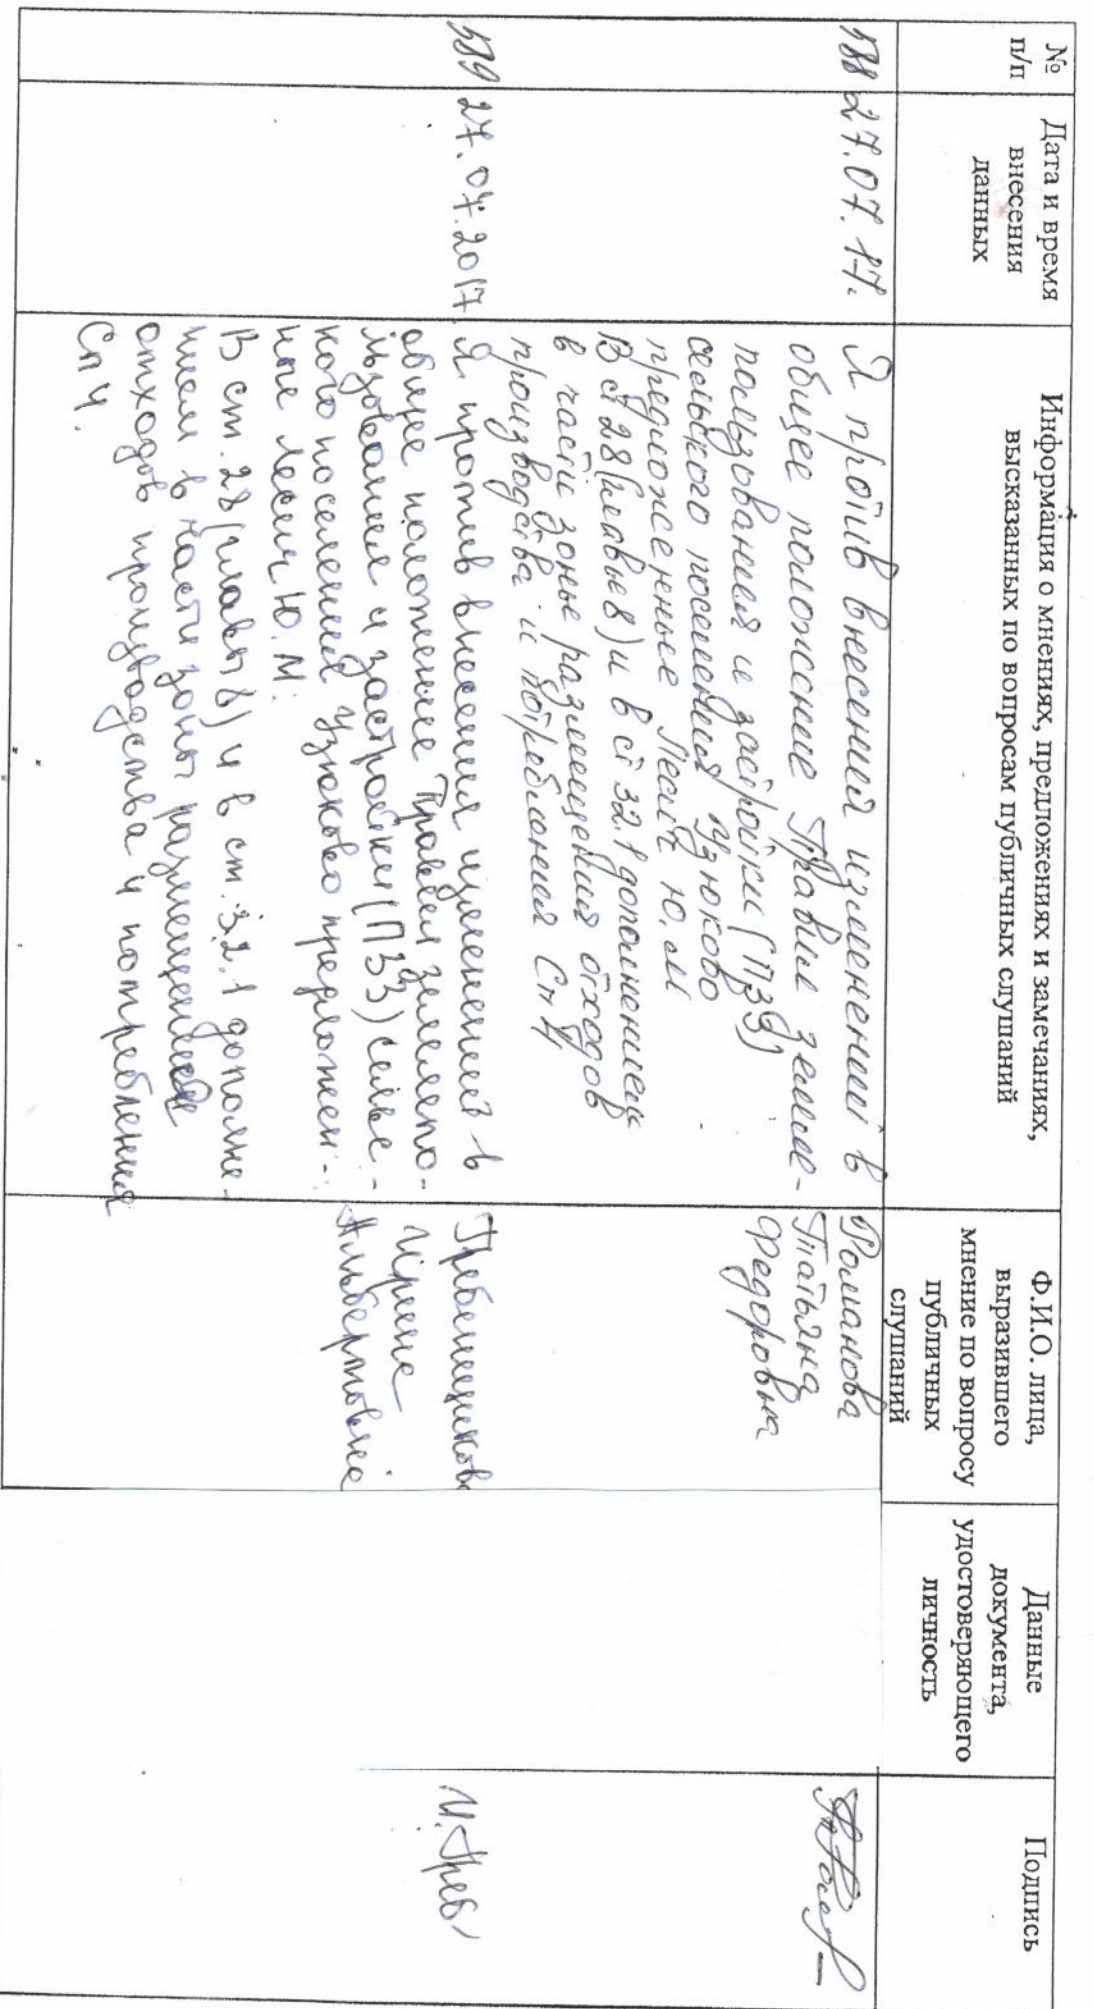 №
п/п
Дата и время
внесения
данных
Информация о мнениях, предложениях и замечаниях,
высказанных по вопросам публичных слушаний
Ф.И.О. лица,
выразившего
мнение по вопросу
публичных
слушаний
Данные
документа,
удостоверяющего
личность
Подпись
588
27.07.17.
Я против внесений изменений в
общее положение Правил земле-
пользования и застройки (ПЗЗ)
сельского поселения Узюково
предложенные Лесич Ю.М
В ст 28 (главы 8) и в ст 32.1 дополнением
в части зоны размещения отходов
производства и потребления Сп 4
Романова
Татьяна
Федоровна
589
27.07.2017
Я против внесения изменений в
общее положение Правил землепо-
льзования и застройки (ПЗЗ) сельс-
кого поселения Узюково предложен-
ные Лесич Ю.М.
В ст. 28 (главы 8) и в ст. 32.1 дополне-
нием в части зоны размещения
отходов производства и потребления
Сп 4.
Гребенщикова
Ирина
Альбертовна
И.Греб